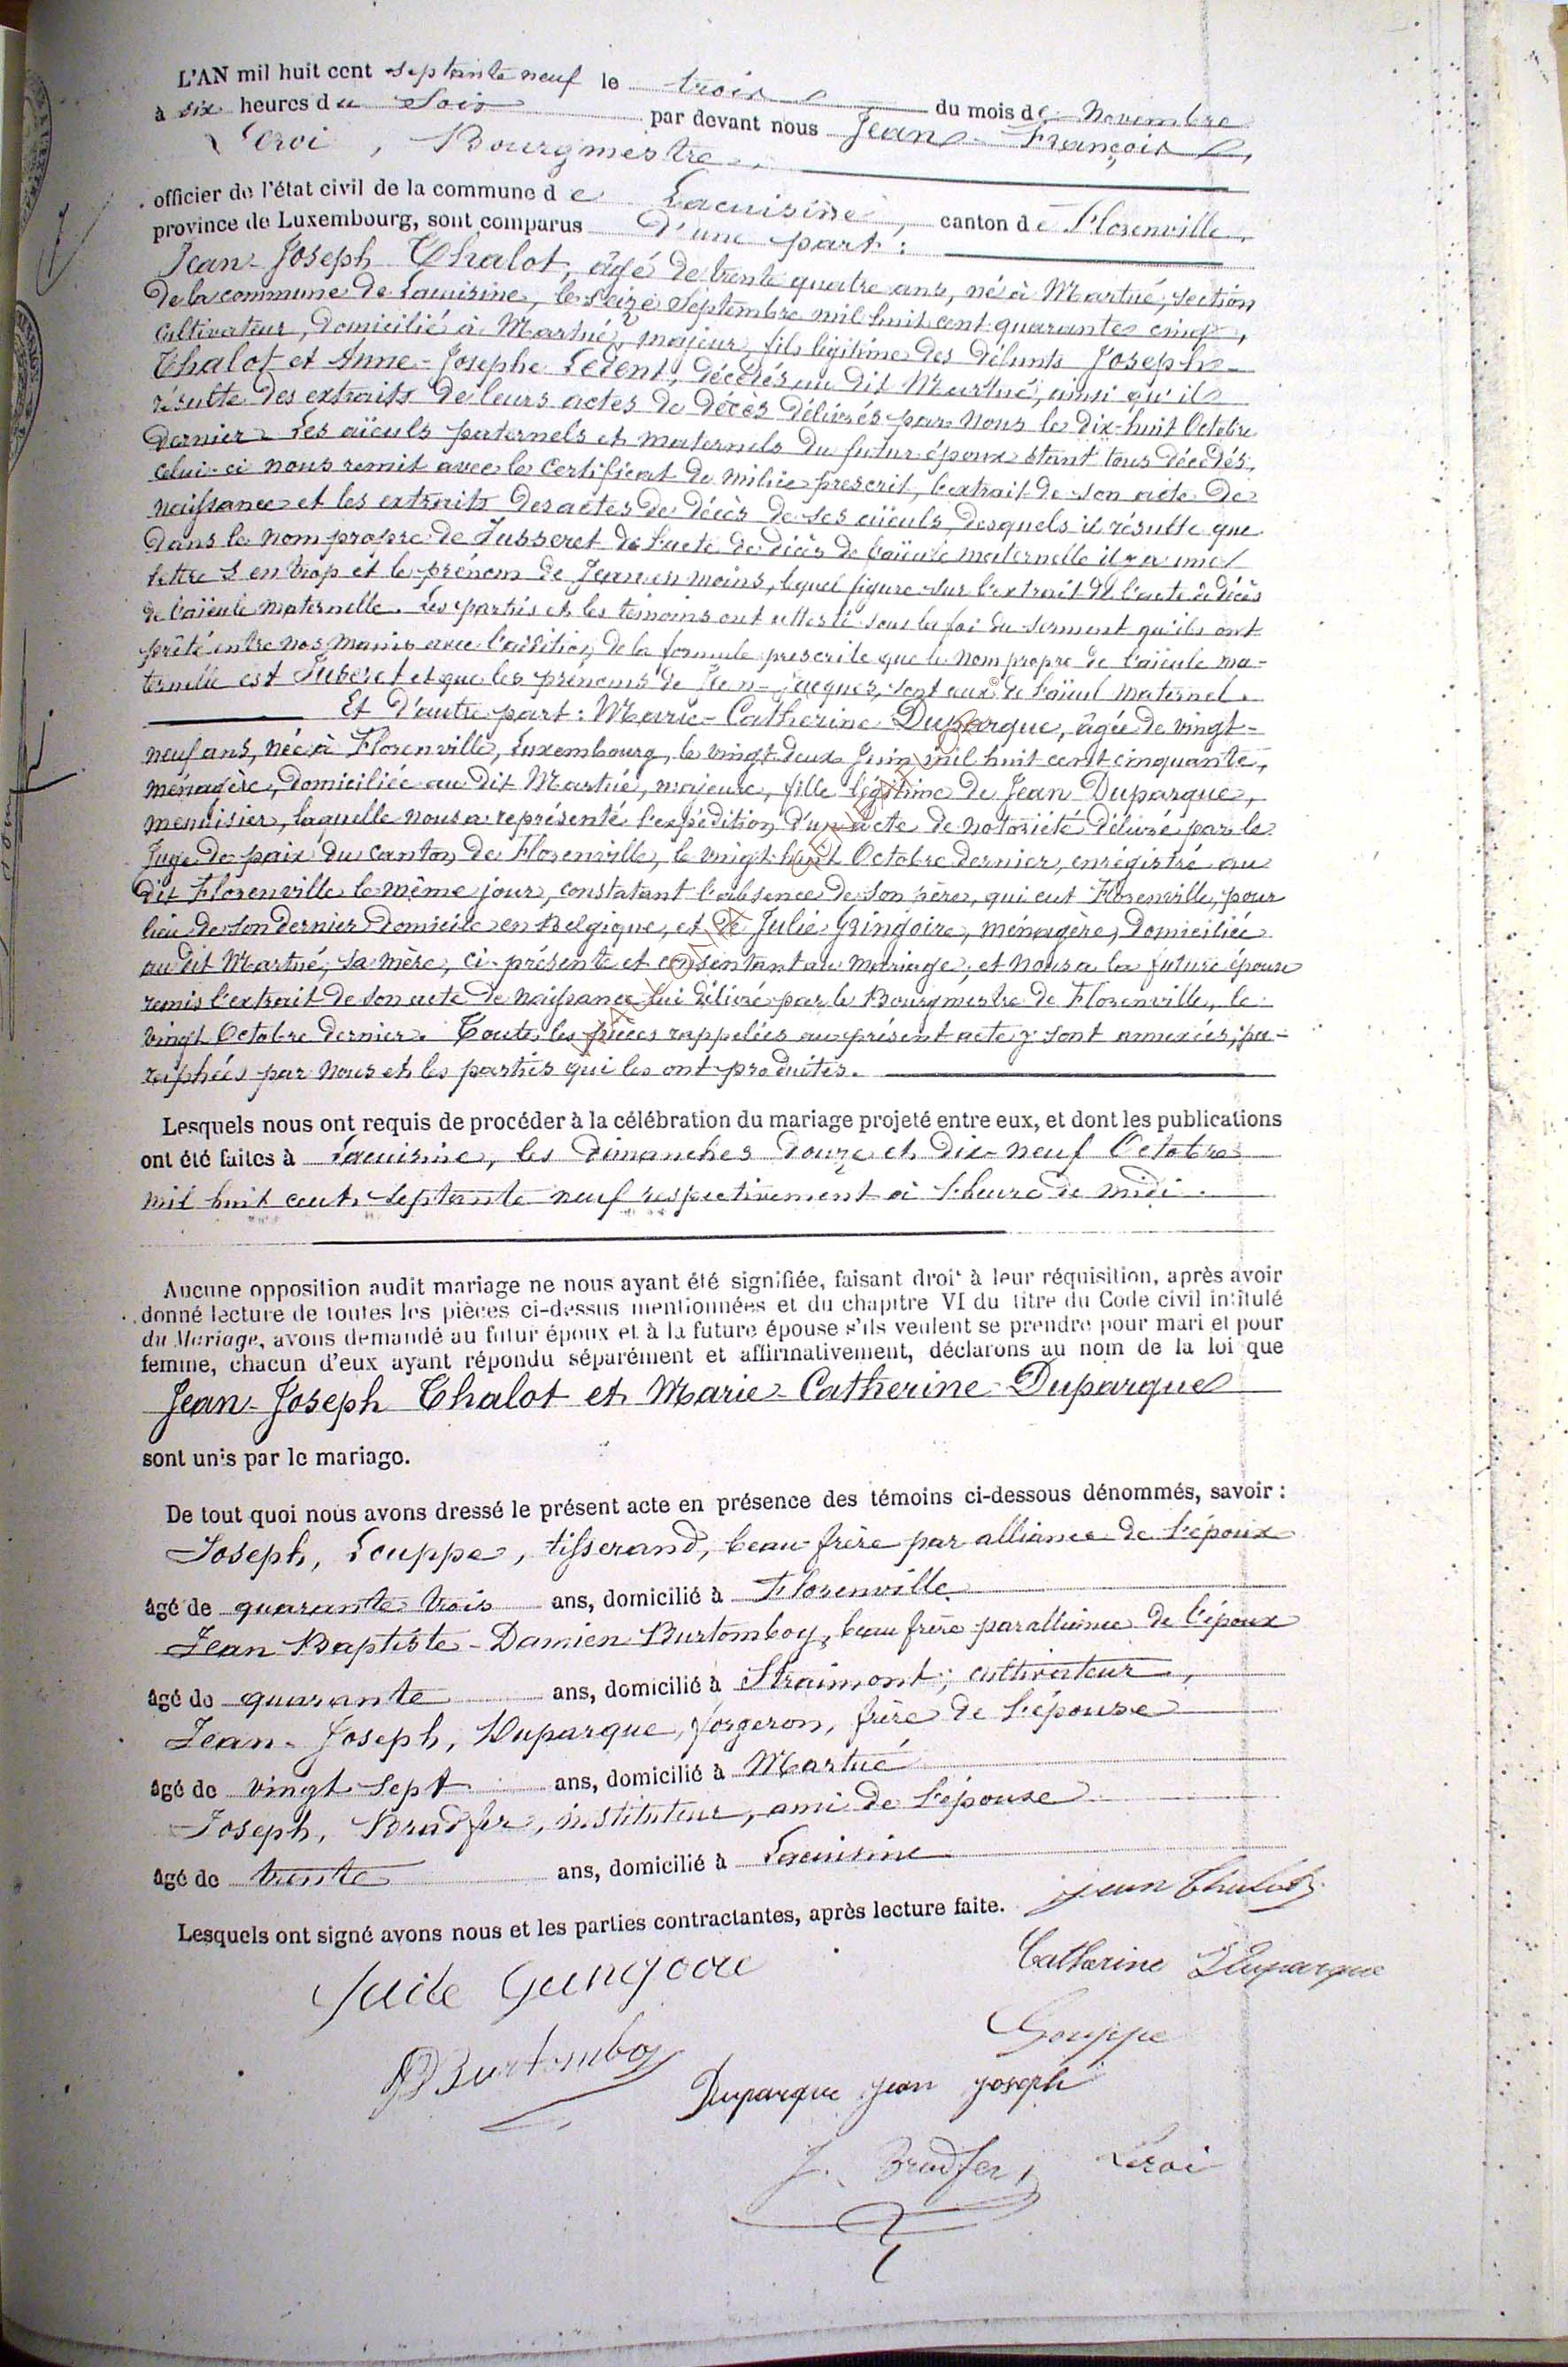 L'AN mil huit cent septante neuf le trois du mois de Novembre
à six heures du Soir par devant nous Jean-François
Leroi, Bourgmestre,
officier de l'état civil de la commune de Lacuisine, canton de Florenville,
province de Luxembourg, sont comparus D'une part:
Jean-Joseph Thalot, âgé de trente quatre ans, né à Martué, section
de la commune de Lacuisine, le seize Septembre mil huit cent quarante cinq,
cultivateur, domicilié à Martué, majeur, fils légitime des défunts Joseph
Thalot et Anne-Josephe Ledent, décédés au dit Martué, ainsi qu'il
résulte des extraits de leurs actes de décès délivrés par Nous le dix-huit Octobre
dernier. Les aïeuls paternels et maternels du futur époux étant tous décédés,
celui-ci nous remit avec le certificat de milice prescrit, l'extrait de son acte de
naissance et les extraits des actes de décès de ses aïeuls, desquels il résulte que
dans le nom propre de Jusseret de l'acte de décès de l'aïeule maternelle il y a une
lettre S en trop et le prénom de Jean en moins, lequel figure sur l'extrait de l'acte de décès
de l'aïeule maternelle. Les parties et les témoins ont attesté sous la foi du serment qu'ils ont
prêté entre nos mains avec l'addition de la formule prescrite que le nom propre de l'aïeule ma-
ternelle est Juseret et que les prénoms de Jean-Jacques, sont ceux de l'aïeul maternel.
Et D'autre part: Marie-Catherine Duparque, âgée de vingt-
neuf ans, née à Florenville, Luxembourg, le vingt deux Juin mil huit cent cinquante,
ménagère, domiciliée au dit Martué, majeure, fille légitime de Jean Duparque,
menuisier, laquelle nous a représenté l'expédition d'un acte de notoriété délivré par le
Juge de paix du canton de Florenville, le vingt huit Octobre dernier, enrégistré au
dit Florenville le même jour, constatant l'absence de son père, qui eut Florenville, pour
lieu de son dernier domicile en Belgique, et de Julie Gringoire, ménagère, domiciliée
au dit Martué, sa mère, ci-présente et consentant au mariage; et nous a la future épouse
remis l'extrait de son acte de naissance lui délivré par le Bourgmestre de Florenville, le
vingt Octobre dernier. Toutes les pièces rappelées au présent acte y sont annexées, pa-
raphées par Nous et les parties qui les ont produites.
Lesquels nous ont requis de procéder à la célébration du mariage projeté entre eux, et dont les publications
ont été faites à Lacuisine, les Dimanches Douze et Dix-neuf Octobre
mil huit cent septante neuf respectivement à l'heure de midi.
Aucune opposition audit mariage ne nous ayant été signifiée, faisant droit à leur réquisition, après avoir
donné lecture de toutes les pièces ci-dessus mentionnées et du chapitre VI du titre du Code civil intitulé
du Mariage, avons demandé au futur époux et à la future épouse s'ils veulent se prendre pour mari et pour
femme, chacun d'eux ayant répondu séparément et affirmativement, déclarons au nom de la loi que
Jean-Joseph Thalot et Marie-Catherine Duparque
sont unis par le mariage.
De tout quoi nous avons dressé le présent acte en présence des témoins ci-dessous dénommés, savoir:
Joseph, Louppe, tisserand, beau-frère par alliance de l'époux
âgé de quarante trois ans, domicilié à Florenville
Jean Baptiste-Damien Burtomboy, beau frère par alliance de l'époux
âgé de quarante ans, domicilié à Straimont, cultivateur,
Jean-Joseph, Duparque, forgeron, frère de l'épouse
âgé de vingt sept ans, domicilié à Martué
Joseph, Bradfer, instituteur, ami de l'épouse
âgé de trente ans, domicilié à Lacuisine
Lesquels ont signé avons nous et les parties contractantes, après lecture faite. jean Thalot
Catherine Duparque
Louppe
Burtomboy
Duparque jean joseph
J. Bradfer, Leroi